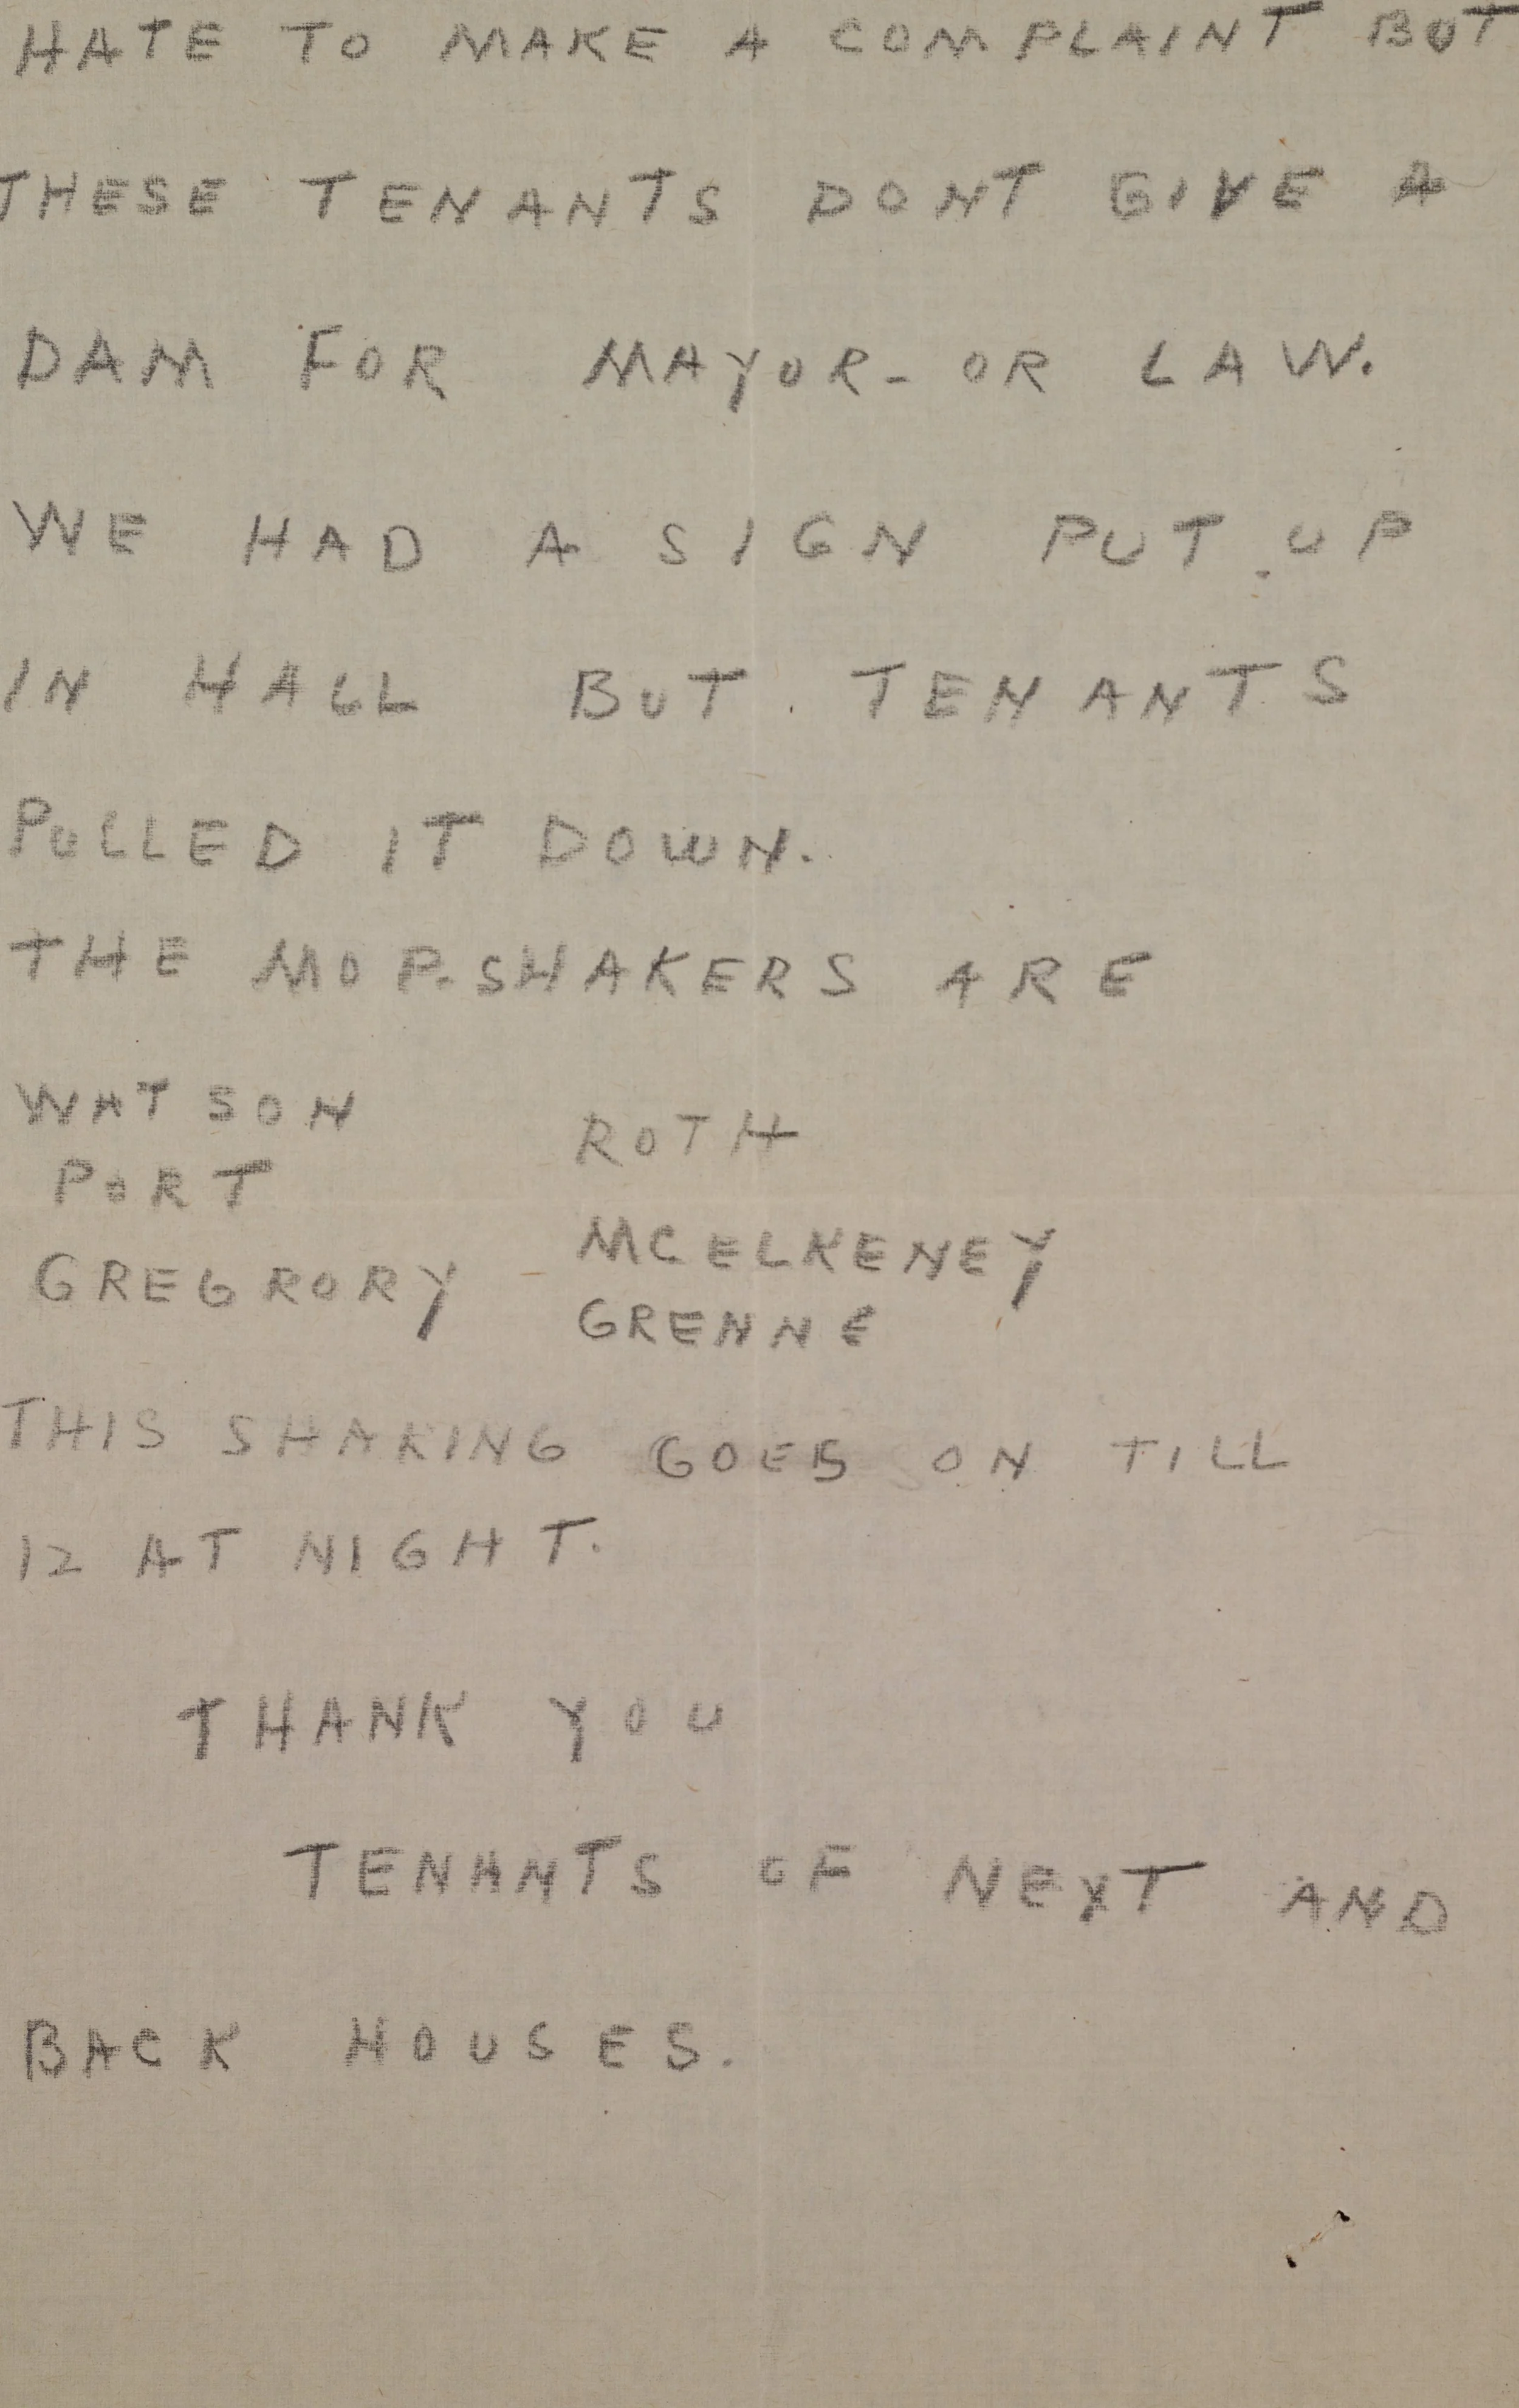 HATE TO MAKE A COMPLAINT BUT
THESE TENANTS DONT GIVE A
DAM FOR MAYOR - OR LAW.
WE HAD A SIGN PUT UP
IN HALL BUT TENANTS
PULLED IT DOWN.
THE MOP-SHAKERS ARE
WATSON
PORT
GREGRORY
ROTH
MCELKENEY
GRENNE
THIS SHAKING GOES ON TILL
12 AT NIGHT.
THANK YOU
TENANTS OF NEXT AND
BACK HOUSES.